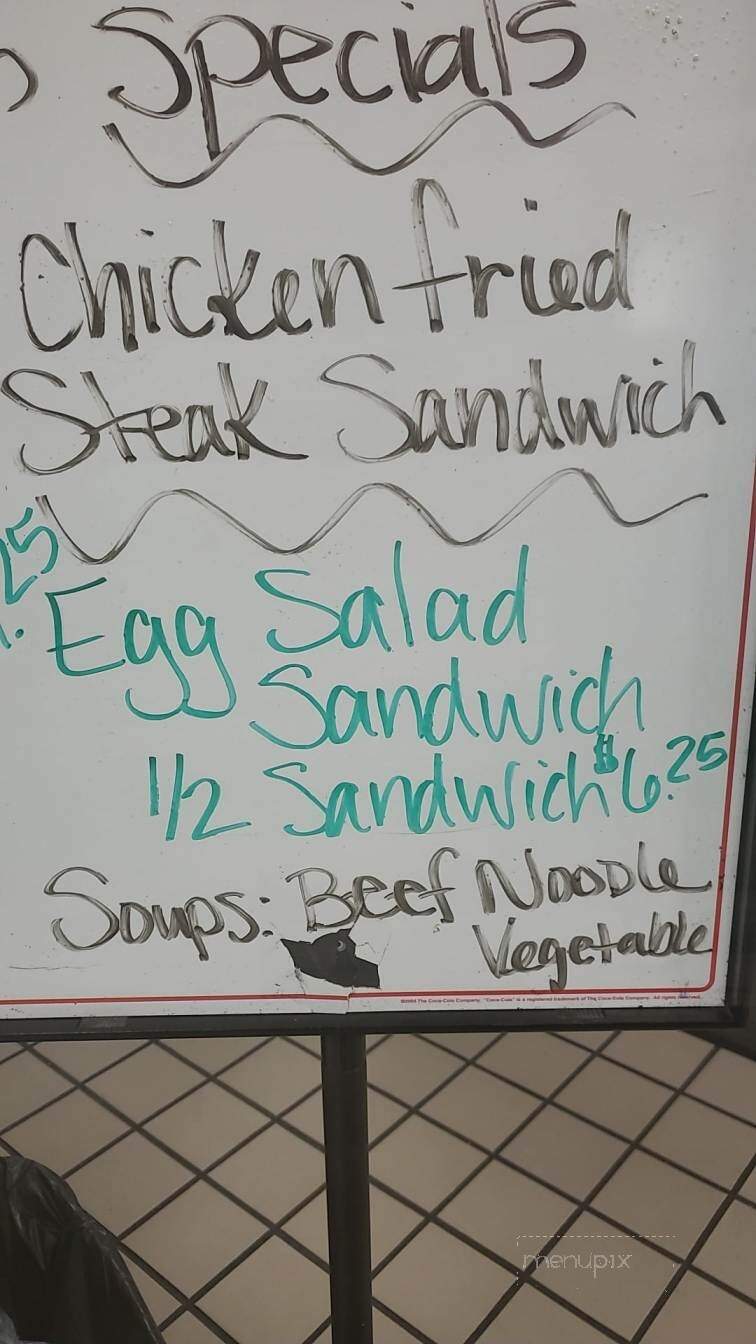 Specials
Chicken fried
Steak Sandwich
.25
Egg Salad
Sandwich
1/2 Sandwich $6.25
Soups: Beef Noodle
Vegetable
©2004 The Coca-Cola Company. "Coca-Cola" is a registered trademark of The Coca-Cola Company. All rights reserved.
menupix